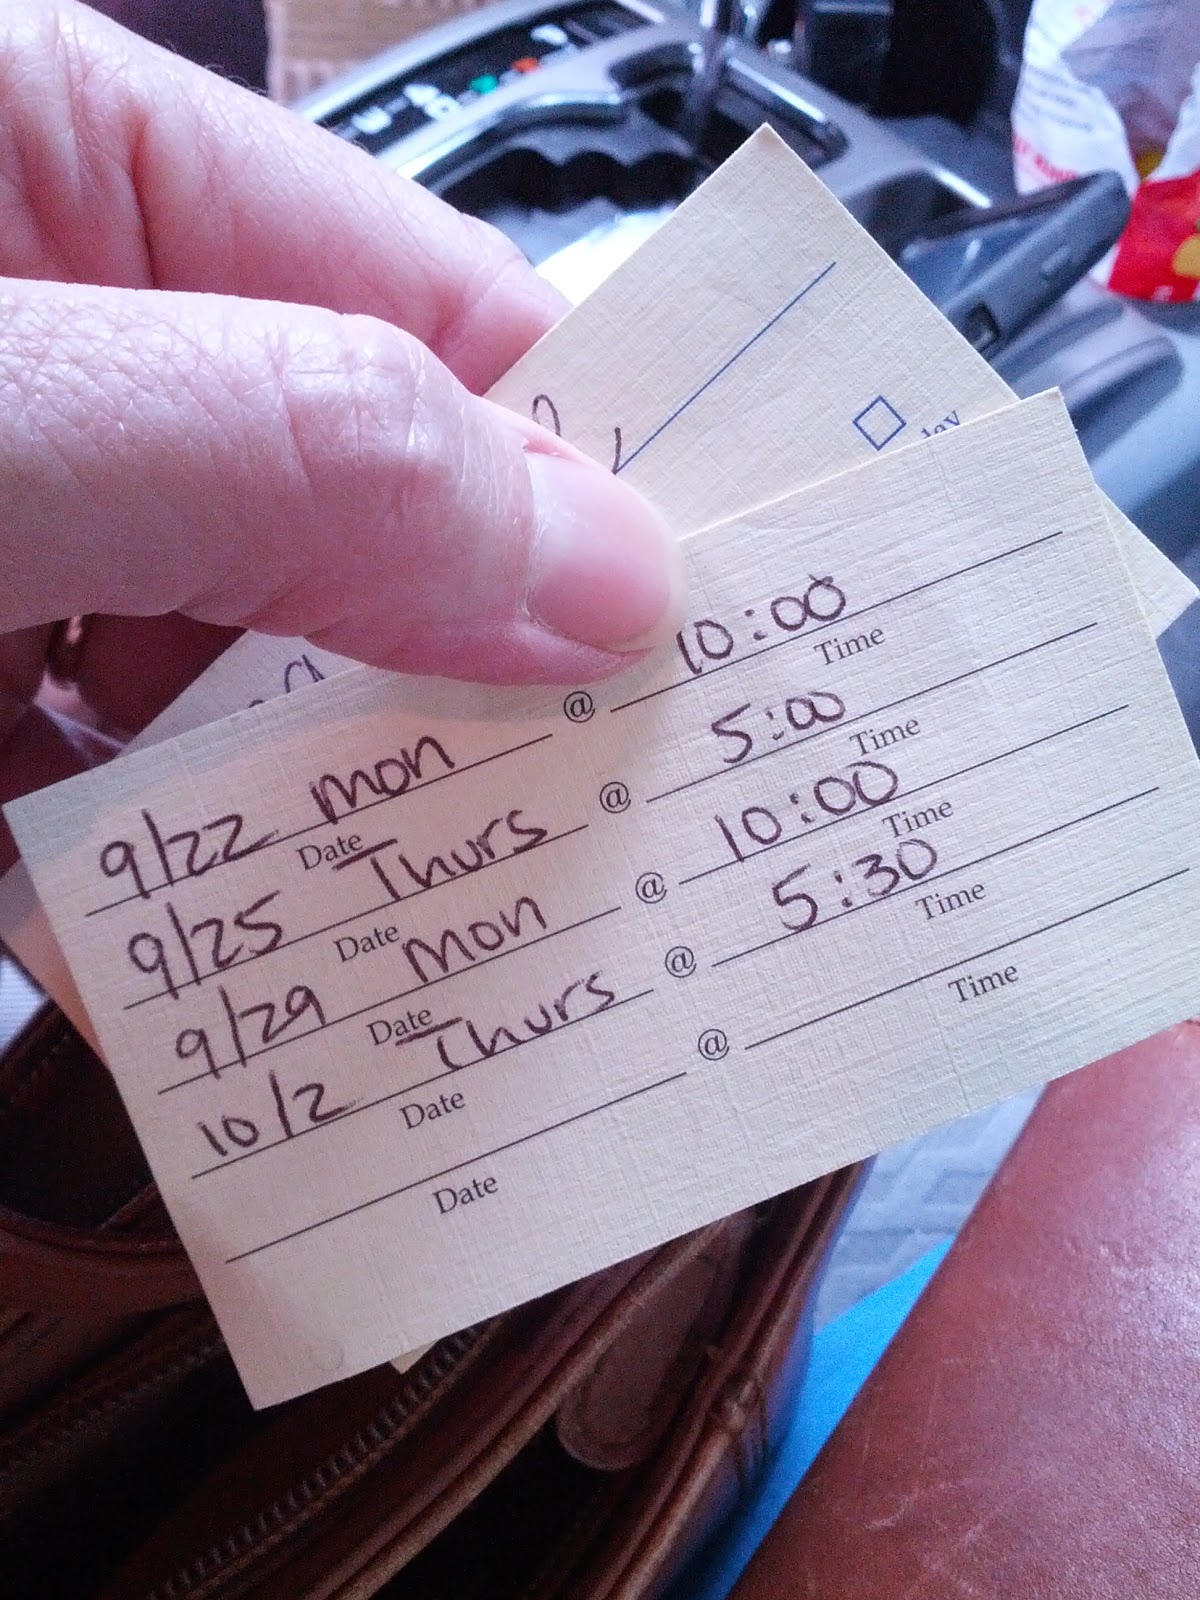 9/22 mon @ 10:00
Date Time
9/25 Thurs @ 5:00
Date Time
9/29 mon @ 10:00
Date Time
10/2 Thurs @ 5:30
Date Time
@
Date Time